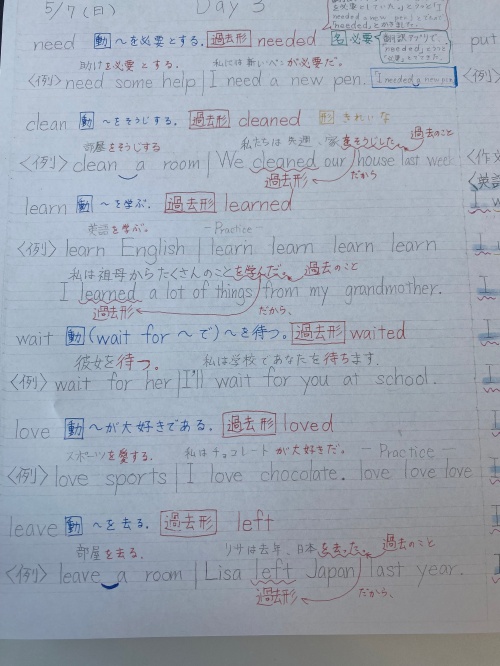 5/7(日) Day 3
need 動 〜を必要とする. 過去形 needed 名 必要
助けを必要とする. 私には新しいペンが必要だ.
〈例〉 need some help | I need a new pen. I needed a new pen
clean 動 〜をそうじする. 過去形 cleaned 形 きれいな
部屋をそうじする 私たちは先週、家をそうじした. 過去のこと
〈例〉 clean a room | We cleaned our house last week
過去形 だから
learn 動 〜を学ぶ. 過去形 learned
英語を学ぶ. -Practice-
〈例〉 learn English | learn learn learn learn
私は祖母からたくさんのことを学んだ. 過去のこと
I learned a lot of things from my grandmother.
過去形 だから、
wait 動 (wait for 〜で) 〜を待つ. 過去形 waited
彼女を待つ. 私は学校であなたを待ちます.
〈例〉 wait for her | I'll wait for you at school.
love 動 〜が大好きである. 過去形 loved
スポーツを愛する. 私はチョコレートが大好きだ. -Practice-
〈例〉 love sports | I love chocolate. love love love
leave 動 〜を去る. 過去形 left
部屋を去る. リサは去年、日本を去った. 過去のこと
〈例〉 leave a room | Lisa left Japan last year.
過去形 だから、
put
〈作文
〈英語